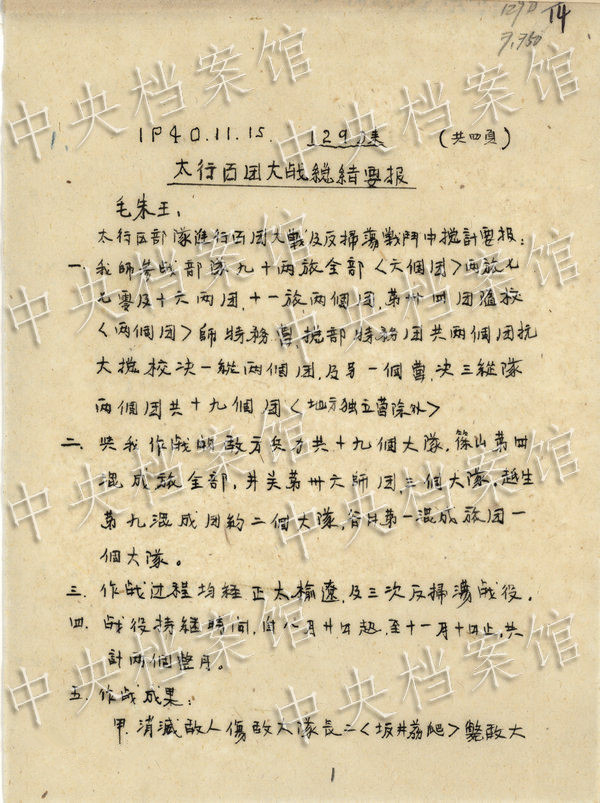 129D T4
9.750
1940.11.15. 129师来 (共四頁)
太行百团大战總結要报
毛朱王:
太行区部隊進行百团大戰及反掃蕩戰鬥中揔計要报:
一、我師参战部隊九十两旅全部<六個团>两旅七
七零及十六两团,十一旅两個团,第卅四团隨校
<两個团>師特務营,揔部特務团共两個团抗
大揔校决一縱两個团,及另一個营,决三縱隊
两個团共十九個团<地方独立营除外>
二、與我作战的敌方兵力共十九個大隊,篠山第四
混成旅全部,井关第卅六师团,三個大隊,
第九混成团約二個大隊,谷口第一混成旅团一
個大隊。
三、作战过程均経正太榆遼,及三次反掃蕩战役。
四、战役持继時间,自八月廿日起,至十一月十日止,共
計两個整月。
五、作战成果:
甲.消滅敌人傷敌大隊長二<坂井荔爬>斃敌大
1
中央档案馆